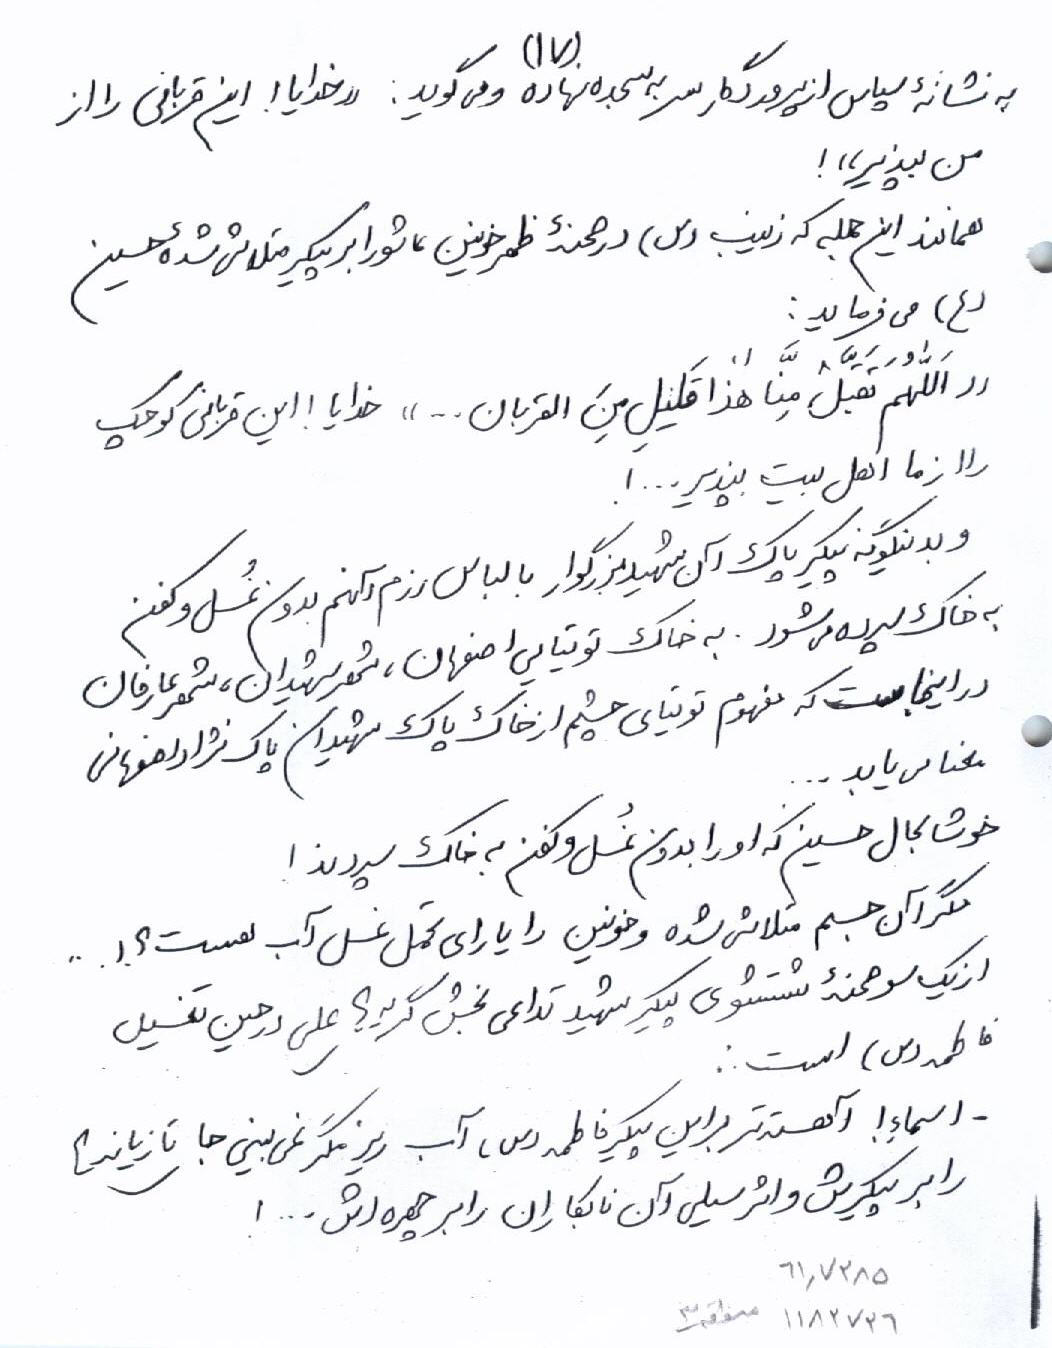 (۱۷)
به نشانهٔ سپاس از پروردگار سر به سجده نهاده و می‌گوید: «خدایا! این قربانی را از
من بپذیر»!
همانند این جمله که زینب (س) در صحنهٔ ظهر خونین عاشورا بر پیکر متلاشی شدهٔ حسین
(ع) می‌فرماید:
«اَللّهُم تَقَبَّلْ مِنَّا هٰذا قَلیلِ مِنَ القربان ...» خدایا! این قربانی کوچک
را از ما اهل بیت بپذیر...!
و بدینگونه پیکرِ پاک آن شهید بزرگوار با لباس رزم و آنهم بدون غُسل و کفن
به خاک سپرده می‌شود. به خاک توتیایی اصفهان، شهر شهیدان، شهر عارفان
در اینجاست که مفهوم توتیای چشم از خاک پاک شهیدان پاک نژاد اصفهانی
معنا می یابد ...
خوشا بحال حسین که او را بدون غُسل و کفن به خاک سپردند!
مگر آن جسم متلاشی شده و خونین را یارای تحمل غسل آب هست؟! ..
از یک سو صحنهٔ شستشوی پیکر شهید تداعی بخش گریهٔ علی در حین تغسیل
فاطمه (س) است :.
- اسماء! آهسته‌تر بر این پیکر فاطمه (س) آب ریز مگر نمی بینی جا تازیانه‌ها
را بر پیکرش و اثر سیلی آن نابکاران را بر چهره اش ...!
۶۱٫۷۲۸۵
۱۱۸۲۷۲۶ منطقه ۳